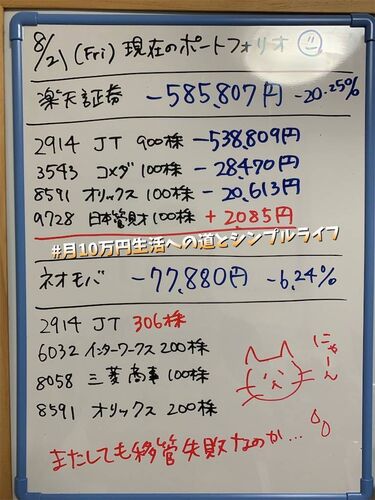 8/21 (Fri) 現在のポートフォリオ
楽天証券 -585,807円 -20.25%
2914 JT 900株 -538,809円
3543 コメダ 100株 -28,470円
8591 オリックス 100株 -20,613円
9728 日本管財 100株 +2085円
#月10万円生活への道とシンプルライフ
ネオモバ -77,880円 -6.24%
2914 JT 306株
6032 インターワークス 200株
8058 三菱商事 100株
8591 オリックス 200株
にゃーん
またしても移管失敗なのか…